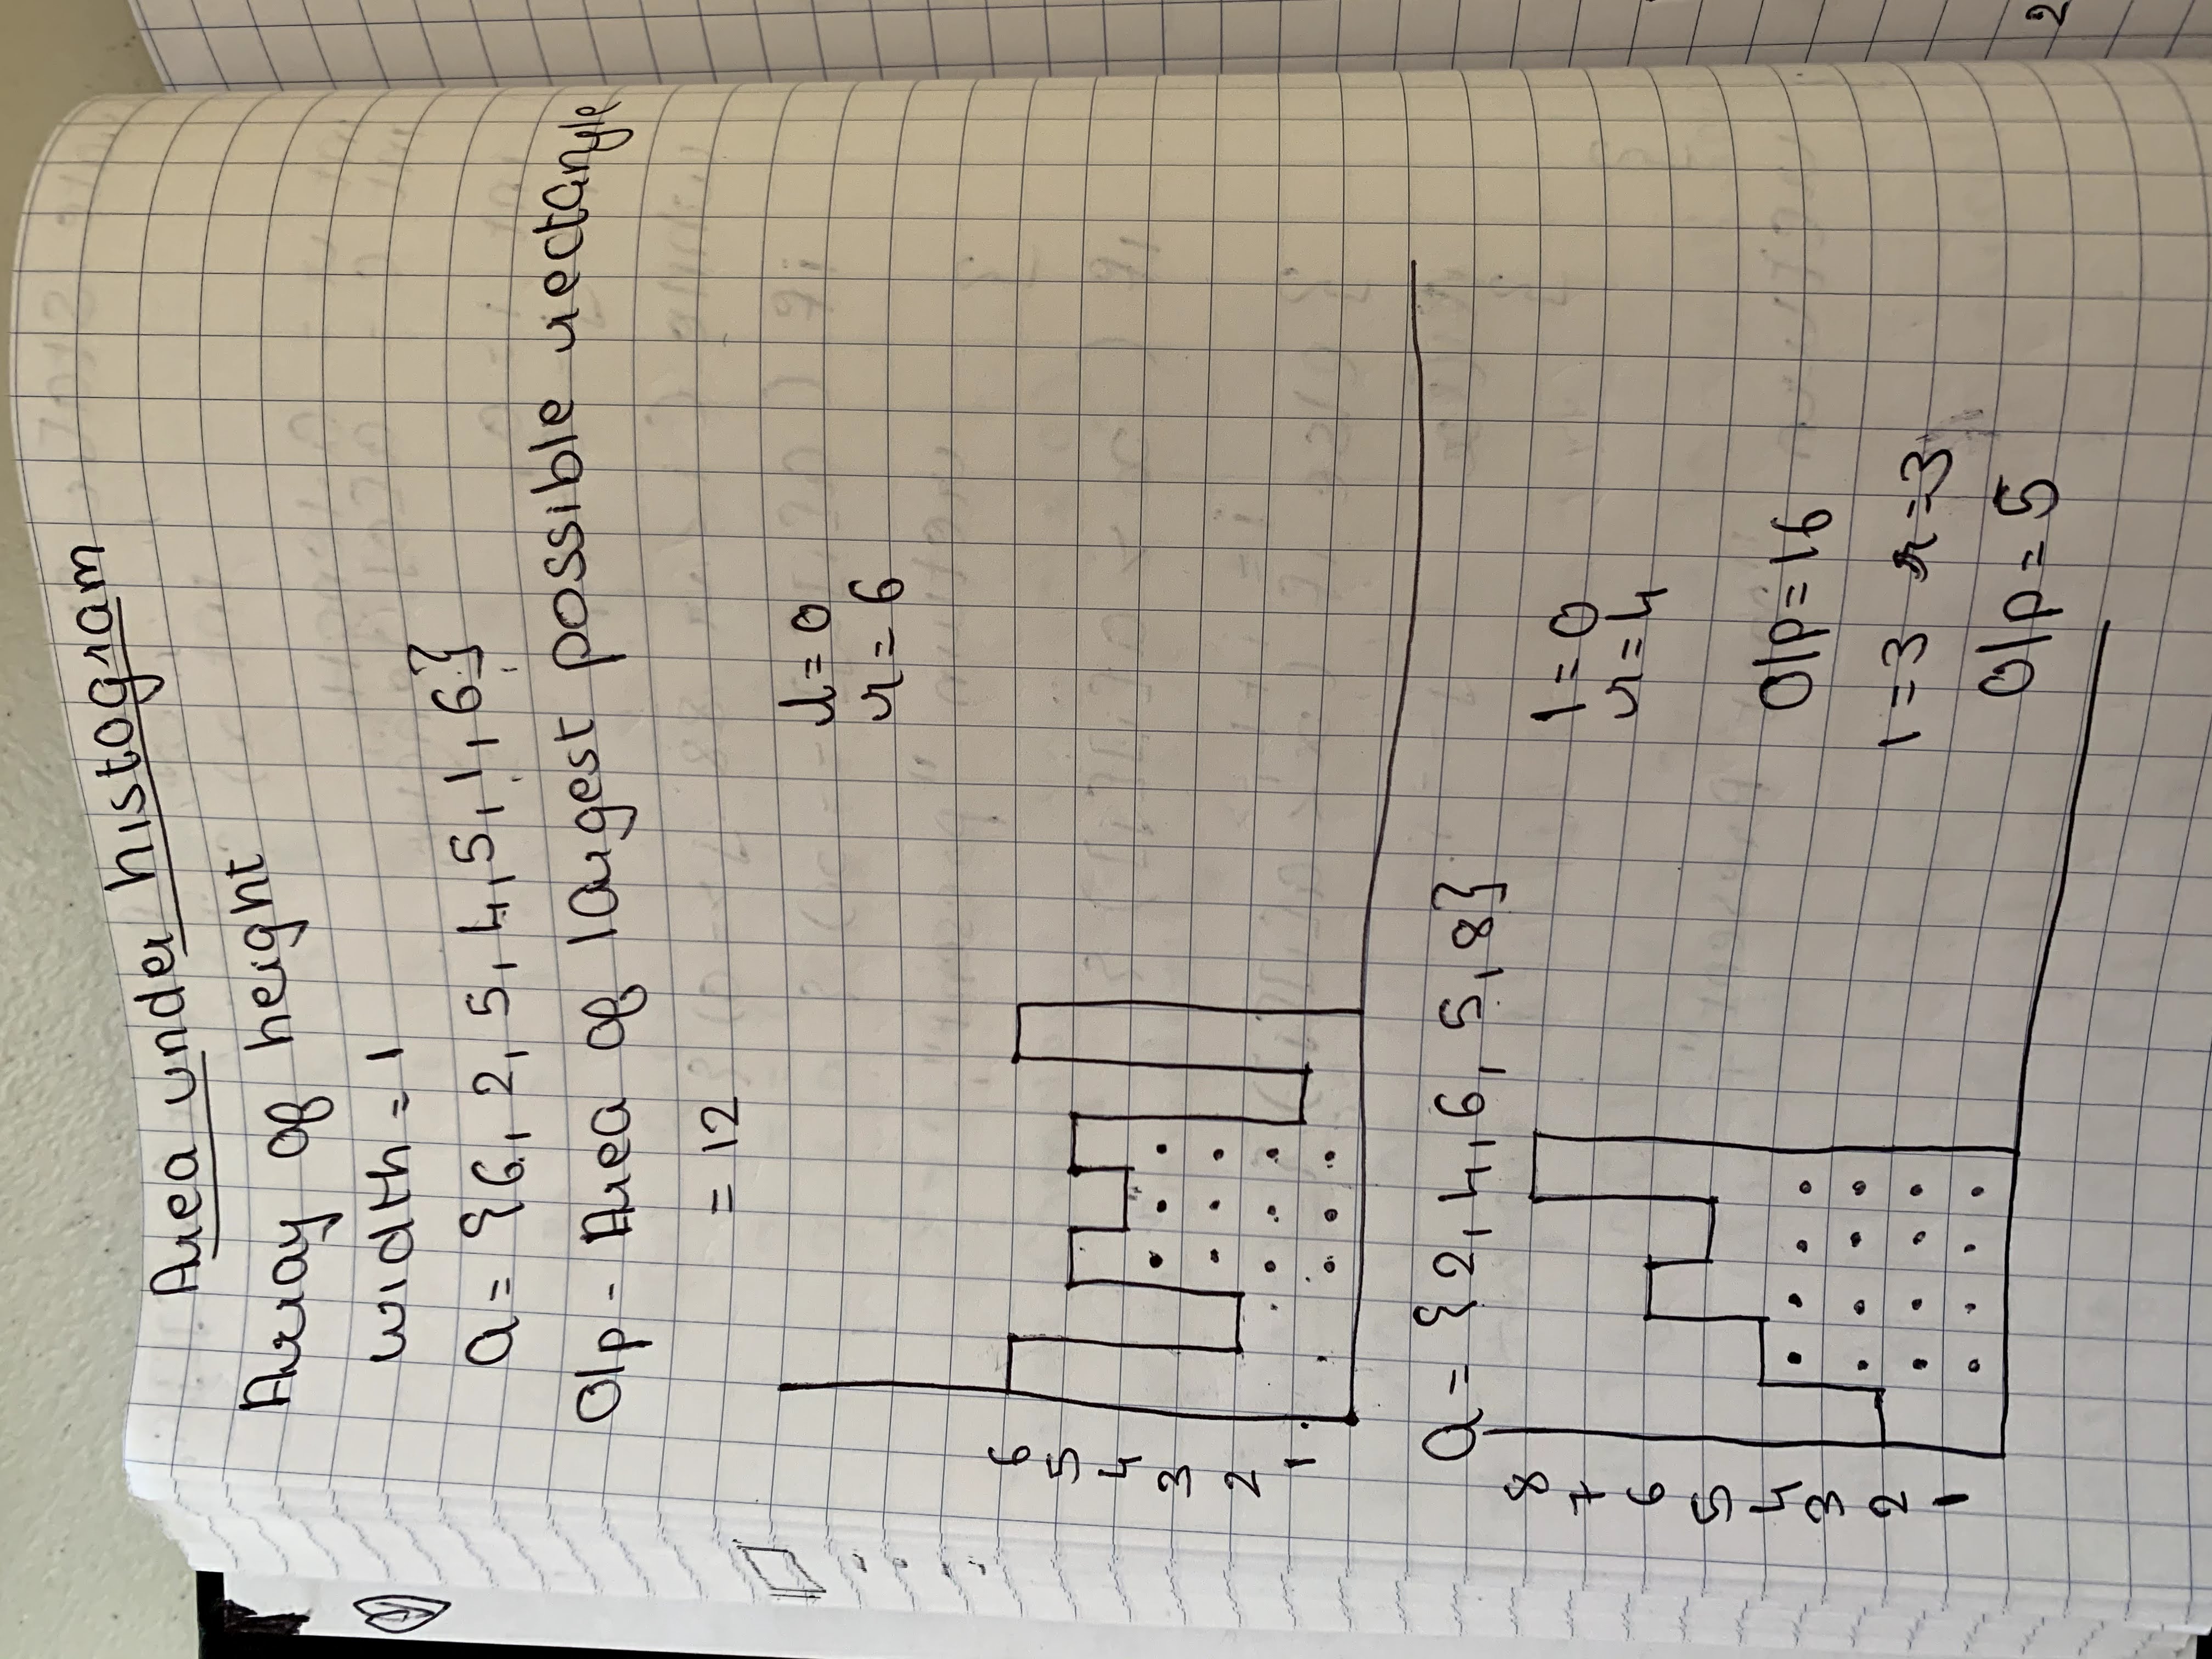 Area under histogram
Array of height
width = 1
a = {6, 2, 5, 4, 5, 1, 6}
O/p - Area of largest possible rectangle
= 12
l = 0
r = 6
6
5
4
3
2
1
a = {2, 4, 6, 5, 8}
8
7
6
5
4
3
2
1
l = 0
r = 4
O/p = 16
l = 3 r = 3
O/p = 5
2